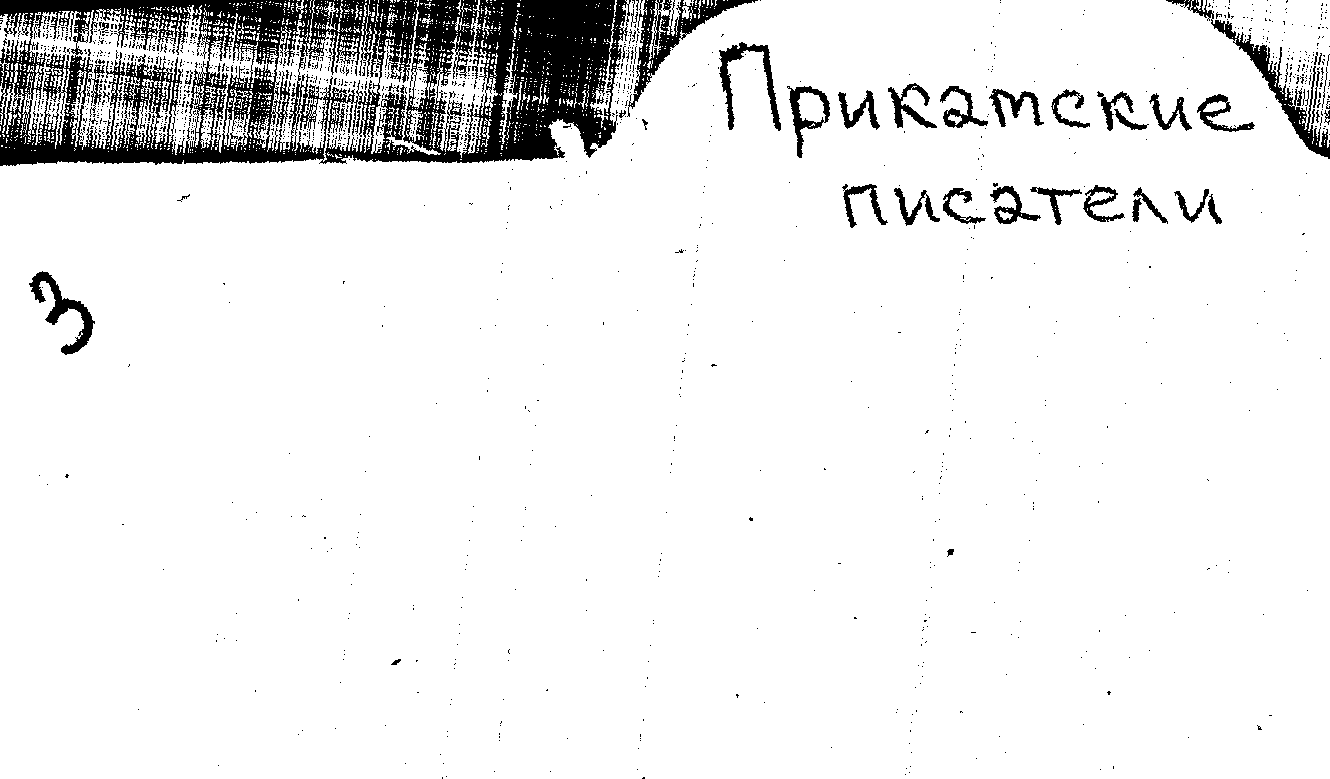 Прикамские
писатели
3